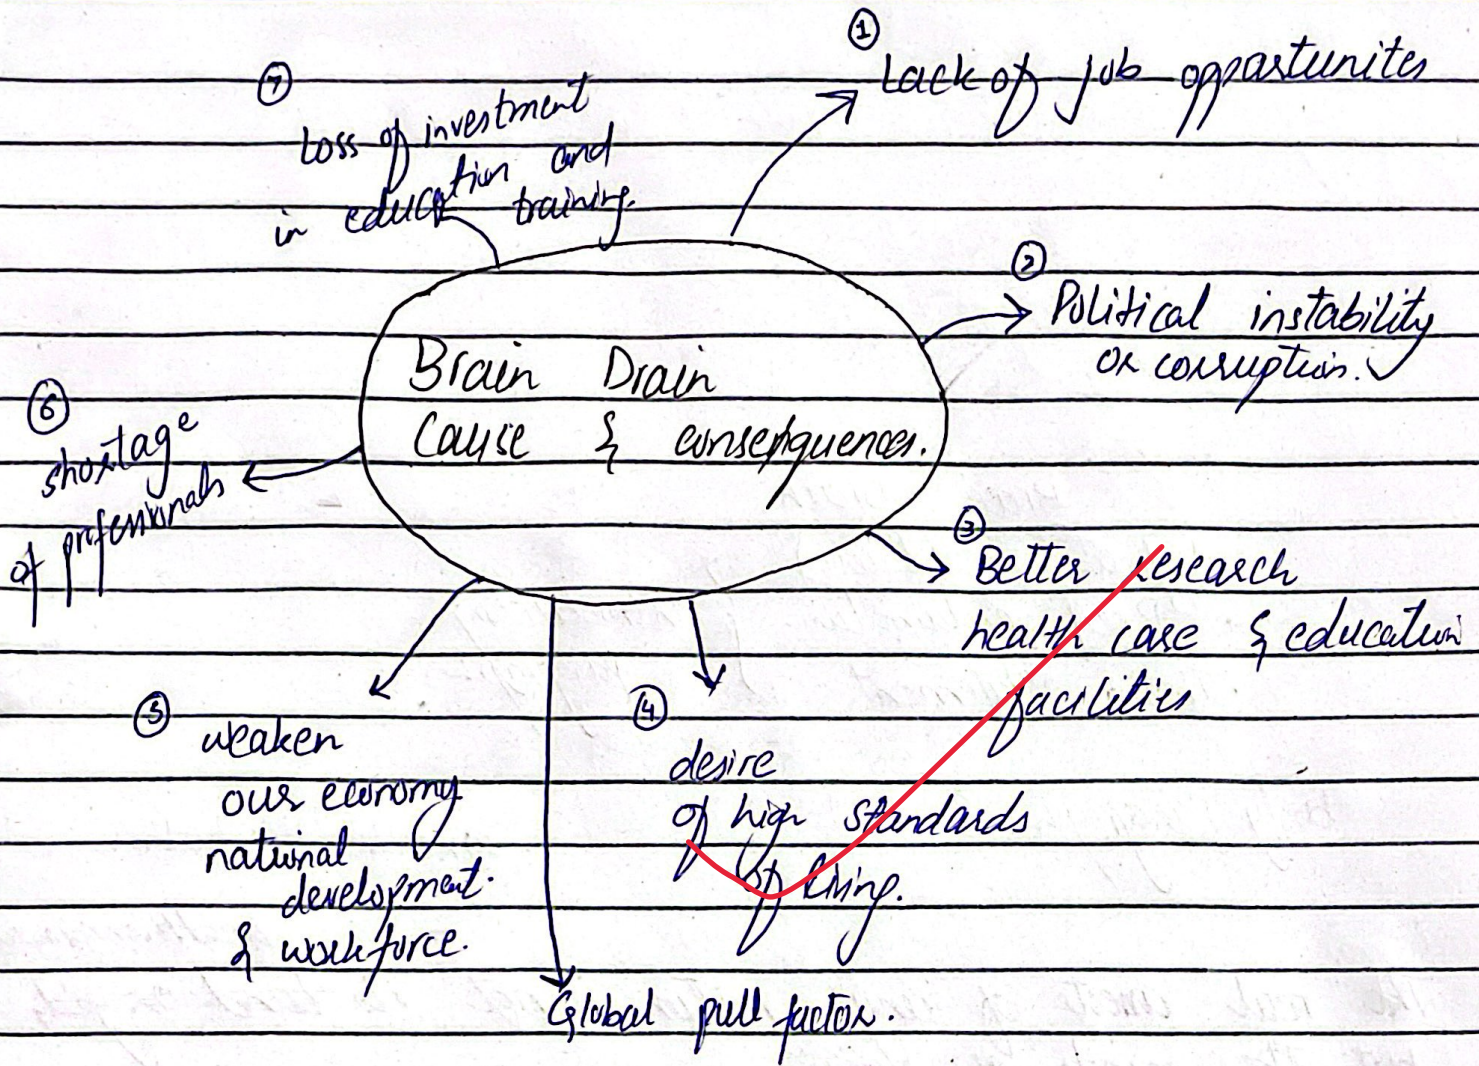 Brain Drain
Cause & consequences.
①
Lack of job opportunites
②
Political instability
or corruption.
③
Better research
health care & education
facilities
④
desire
of high standards
of living.
Global pull factor.
⑤
weaken
our economy
national
development.
& workforce.
⑥
shortage
of professionals
⑦
Loss of investment
in education and
training.